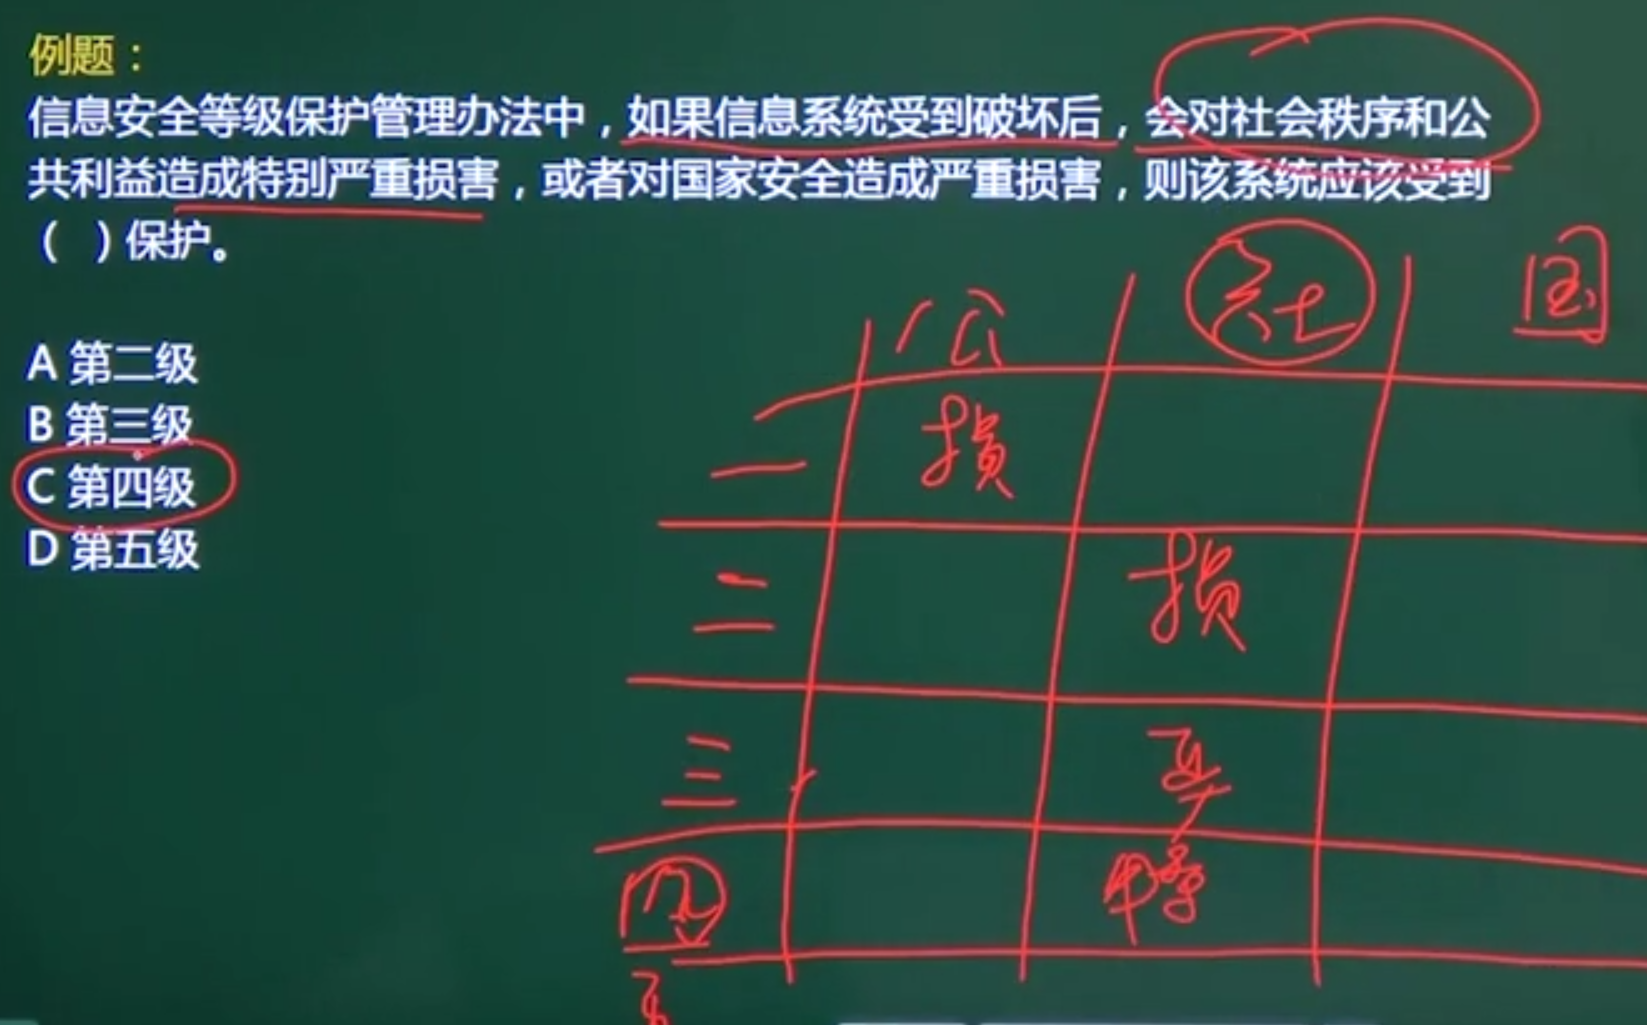 例题：
信息安全等级保护管理办法中，如果信息系统受到破坏后，会对社会秩序和公
共利益造成特别严重损害，或者对国家安全造成严重损害，则该系统应该受到
（ ）保护。
A 第二级
B 第三级
C 第四级
D 第五级
公 社 国
一 损
二 损
三
四